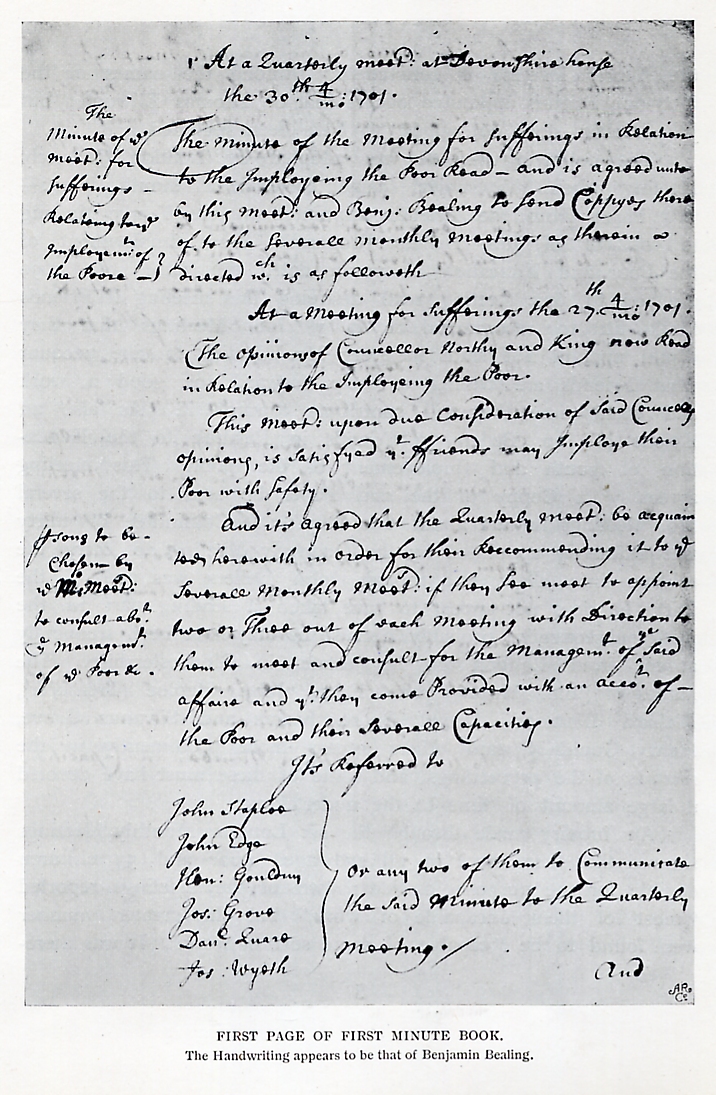 At a Quarterly meet: at Devonshire house
the 30th 4/mo: 1701.
The
Minute of ye
meet: for
Sufferings -
Relateing to ye
Imployemt of
the Poore -
The Minute of the Meeting for Sufferings in Relation
to the Imployeing the Poor Read - and is agreed unto
by this Meet: and Benj: Bealing to send Coppyes there
of to the Severall Monthly Meetings as therein
directed wch. is as followeth
At a Meeting for Sufferings the 27th. 4/mo: 1701.
The opinions of Councellor Northy and King now Read
in Relation to the Imployeing the Poor.
This Meet: upon due Consideration of Said Councells
opinions, is Satisfyed yt. ffriends may Imploye their
Poor with Safety.
And it's agreed that the Quarterly Meet: be acquain
ted herewith in order for their Reccommending it to ye
Severall Monthly Meets: if they See meet to appoint
two or Three out of each Meeting with Direction to
them to meet and consult for the Managemt. of ye Said
affaire and yt. they come Provided with an accot. of -
the Poor and their Severall Capacities.
psons to be -
Chosen by
ye Mo: Meets:
to consult abot.
ye Managemt.
of ye Poor &c.
It's Referred to
John Staploe
John Edge
Hen: Gouldny
Jos: Grove
Danl: Quare
Jos: Wyeth
Or any two of them to Communicate
the said Minute to the Quarterly
Meeting.
And
AR.
Co.
FIRST PAGE OF FIRST MINUTE BOOK.
The Handwriting appears to be that of Benjamin Bealing.